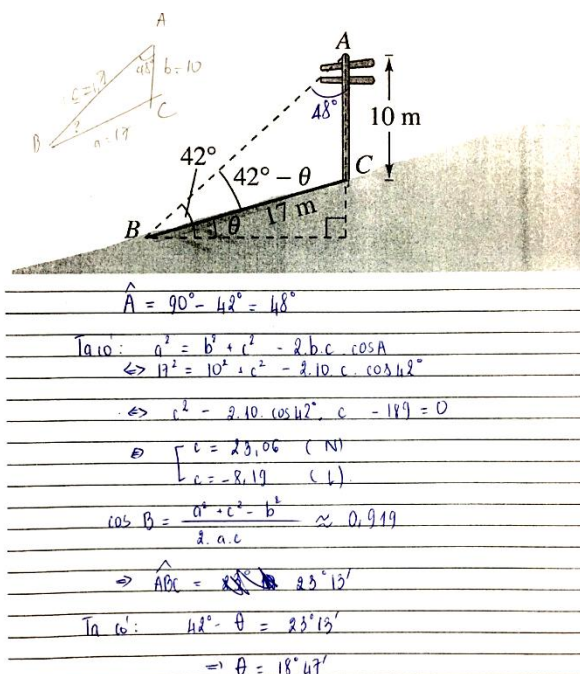 A
48° b=10
C
B ? a=17
A
48°
10 m
42°
42° − θ
C
17 m
θ
B
Â = 90° - 42° = 48°
Ta có: a² = b² + c² - 2.b.c. cosA
<=> 17² = 10² + c² - 2.10.c. cos42°
<=> c² - 2.10. cos42°. c - 189 = 0
c = 23,06 (N)
c = -8,19 (L)
cos B = a² + c² - b² / 2.a.c ≈ 0,919
=> ABC = 23°13'
Ta có: 42° - θ = 23°13'
=> θ = 18°47'